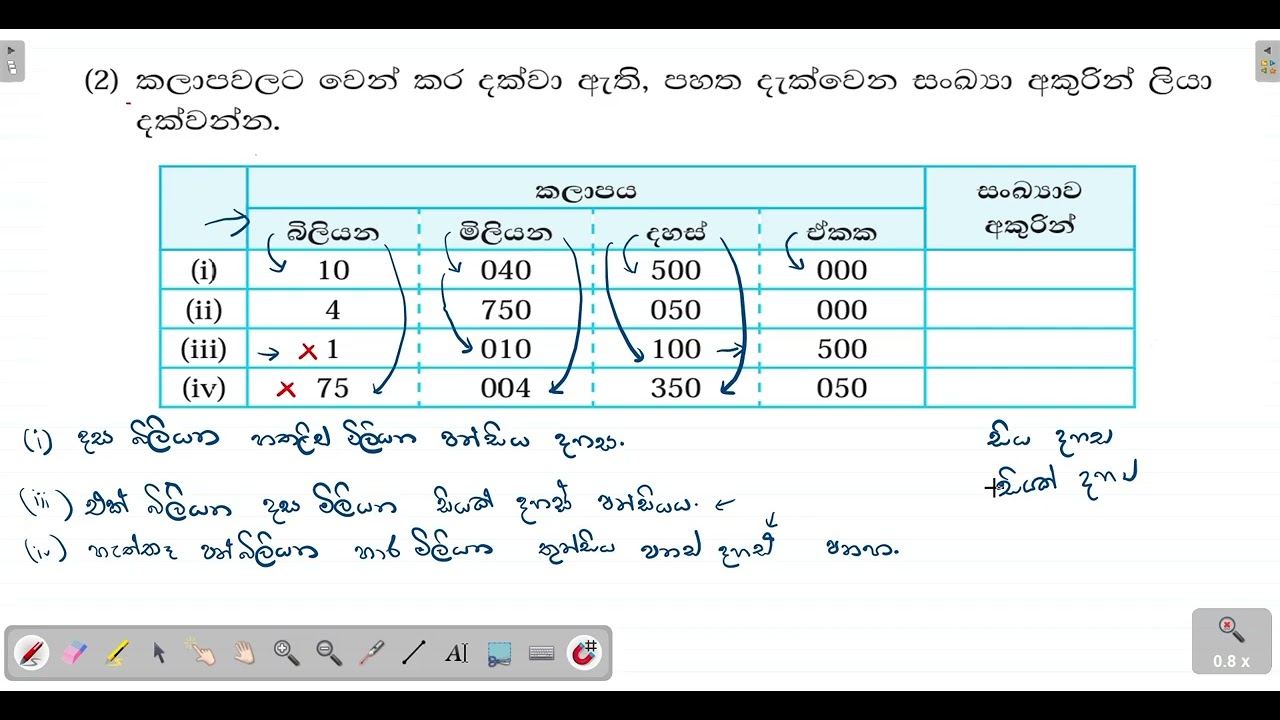 (2) කලාපවලට වෙන් කර දක්වා ඇති, පහත දැක්වෙන සංඛ්‍යා අකුරින් ලියා
දක්වන්න.
කලාපය
සංඛ්‍යාව
අකුරින්
බිලියන මිලියන දහස් ඒකක
(i) 10 040 500 000
(ii) 4 750 050 000
(iii) 1 010 100 500
(iv) 75 004 350 050
(i) දස බිලියන හතළිස් මිලියන පන්සිය දහස.
සිය දහස
සියක් දහස
(iii) එක් බිලියන දස මිලියන සියක් දහස් පන්සියය.
(iv) හැත්තෑ පන් බිලියන හාර මිලියන තුන්සිය පනස් දහස් පනහ.
AI
0.8 x